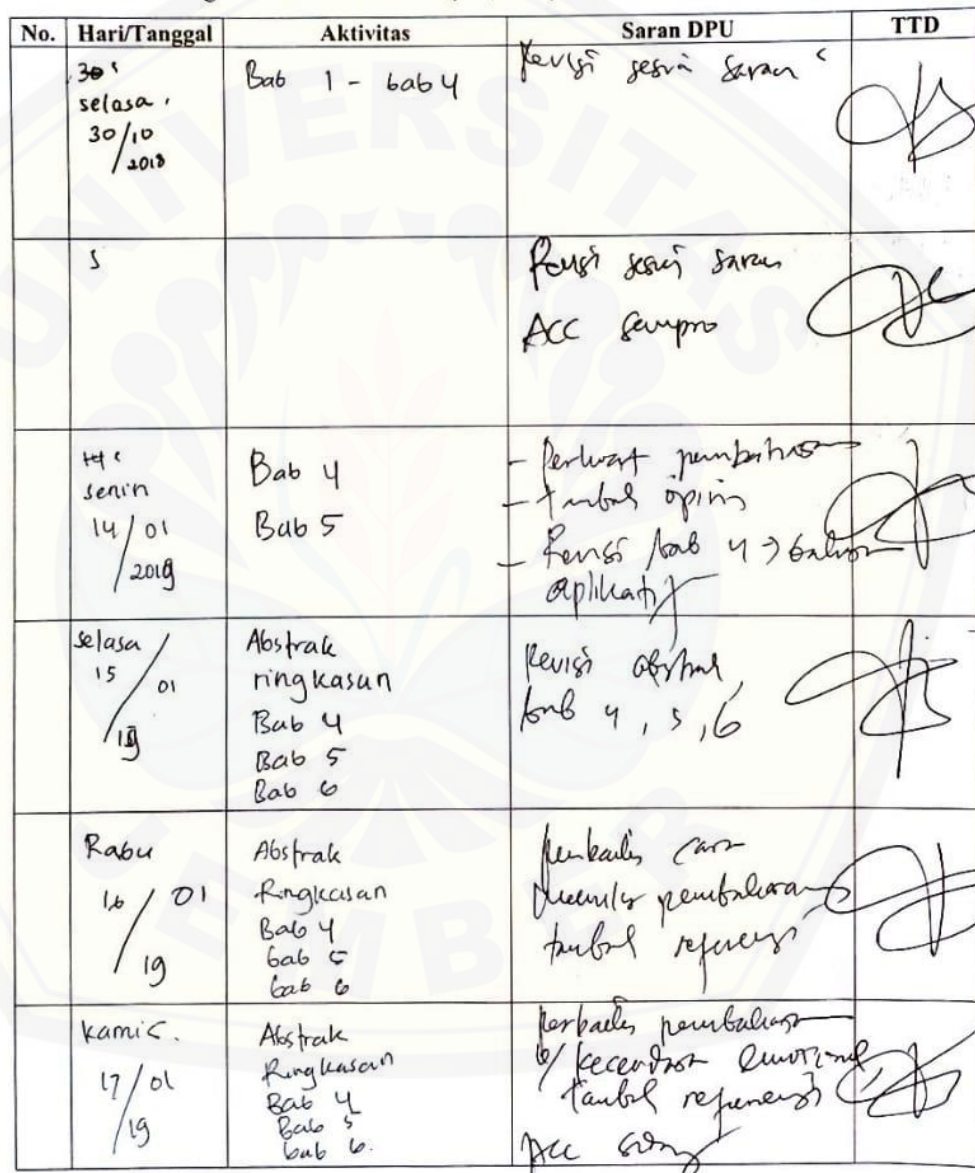 No. Hari/Tanggal Aktivitas Saran DPU TTD
30
selasa,
30/10
/2018
Bab 1 - bab 4
Revisi sesuai saran
S
Revisi sesuai saran
ACC sempro
14
senin
14/01
/2019
Bab 4
Bab 5
- Perkuat pembahasan
- tambah opini
- Revisi bab 4 →
aplikatif
selasa
15/01
/19
Abstrak
ringkasan
Bab 4
Bab 5
Bab 6
Revisi abstrak,
bab 4, 5, 6
Rabu
16/01
/19
Abstrak
Ringkasan
Bab 4
bab 5
bab 6
Perbaiki cara
menulis pembahasan
tambah referensi
kamis.
17/01
/19
Abstrak
Ringkasan
Bab 4
Bab 5
bab 6.
perbaiki pembahasan
kecerdasan emosional
tambah referensi
ACC sidang
UNIVERSITAS
JEMBER